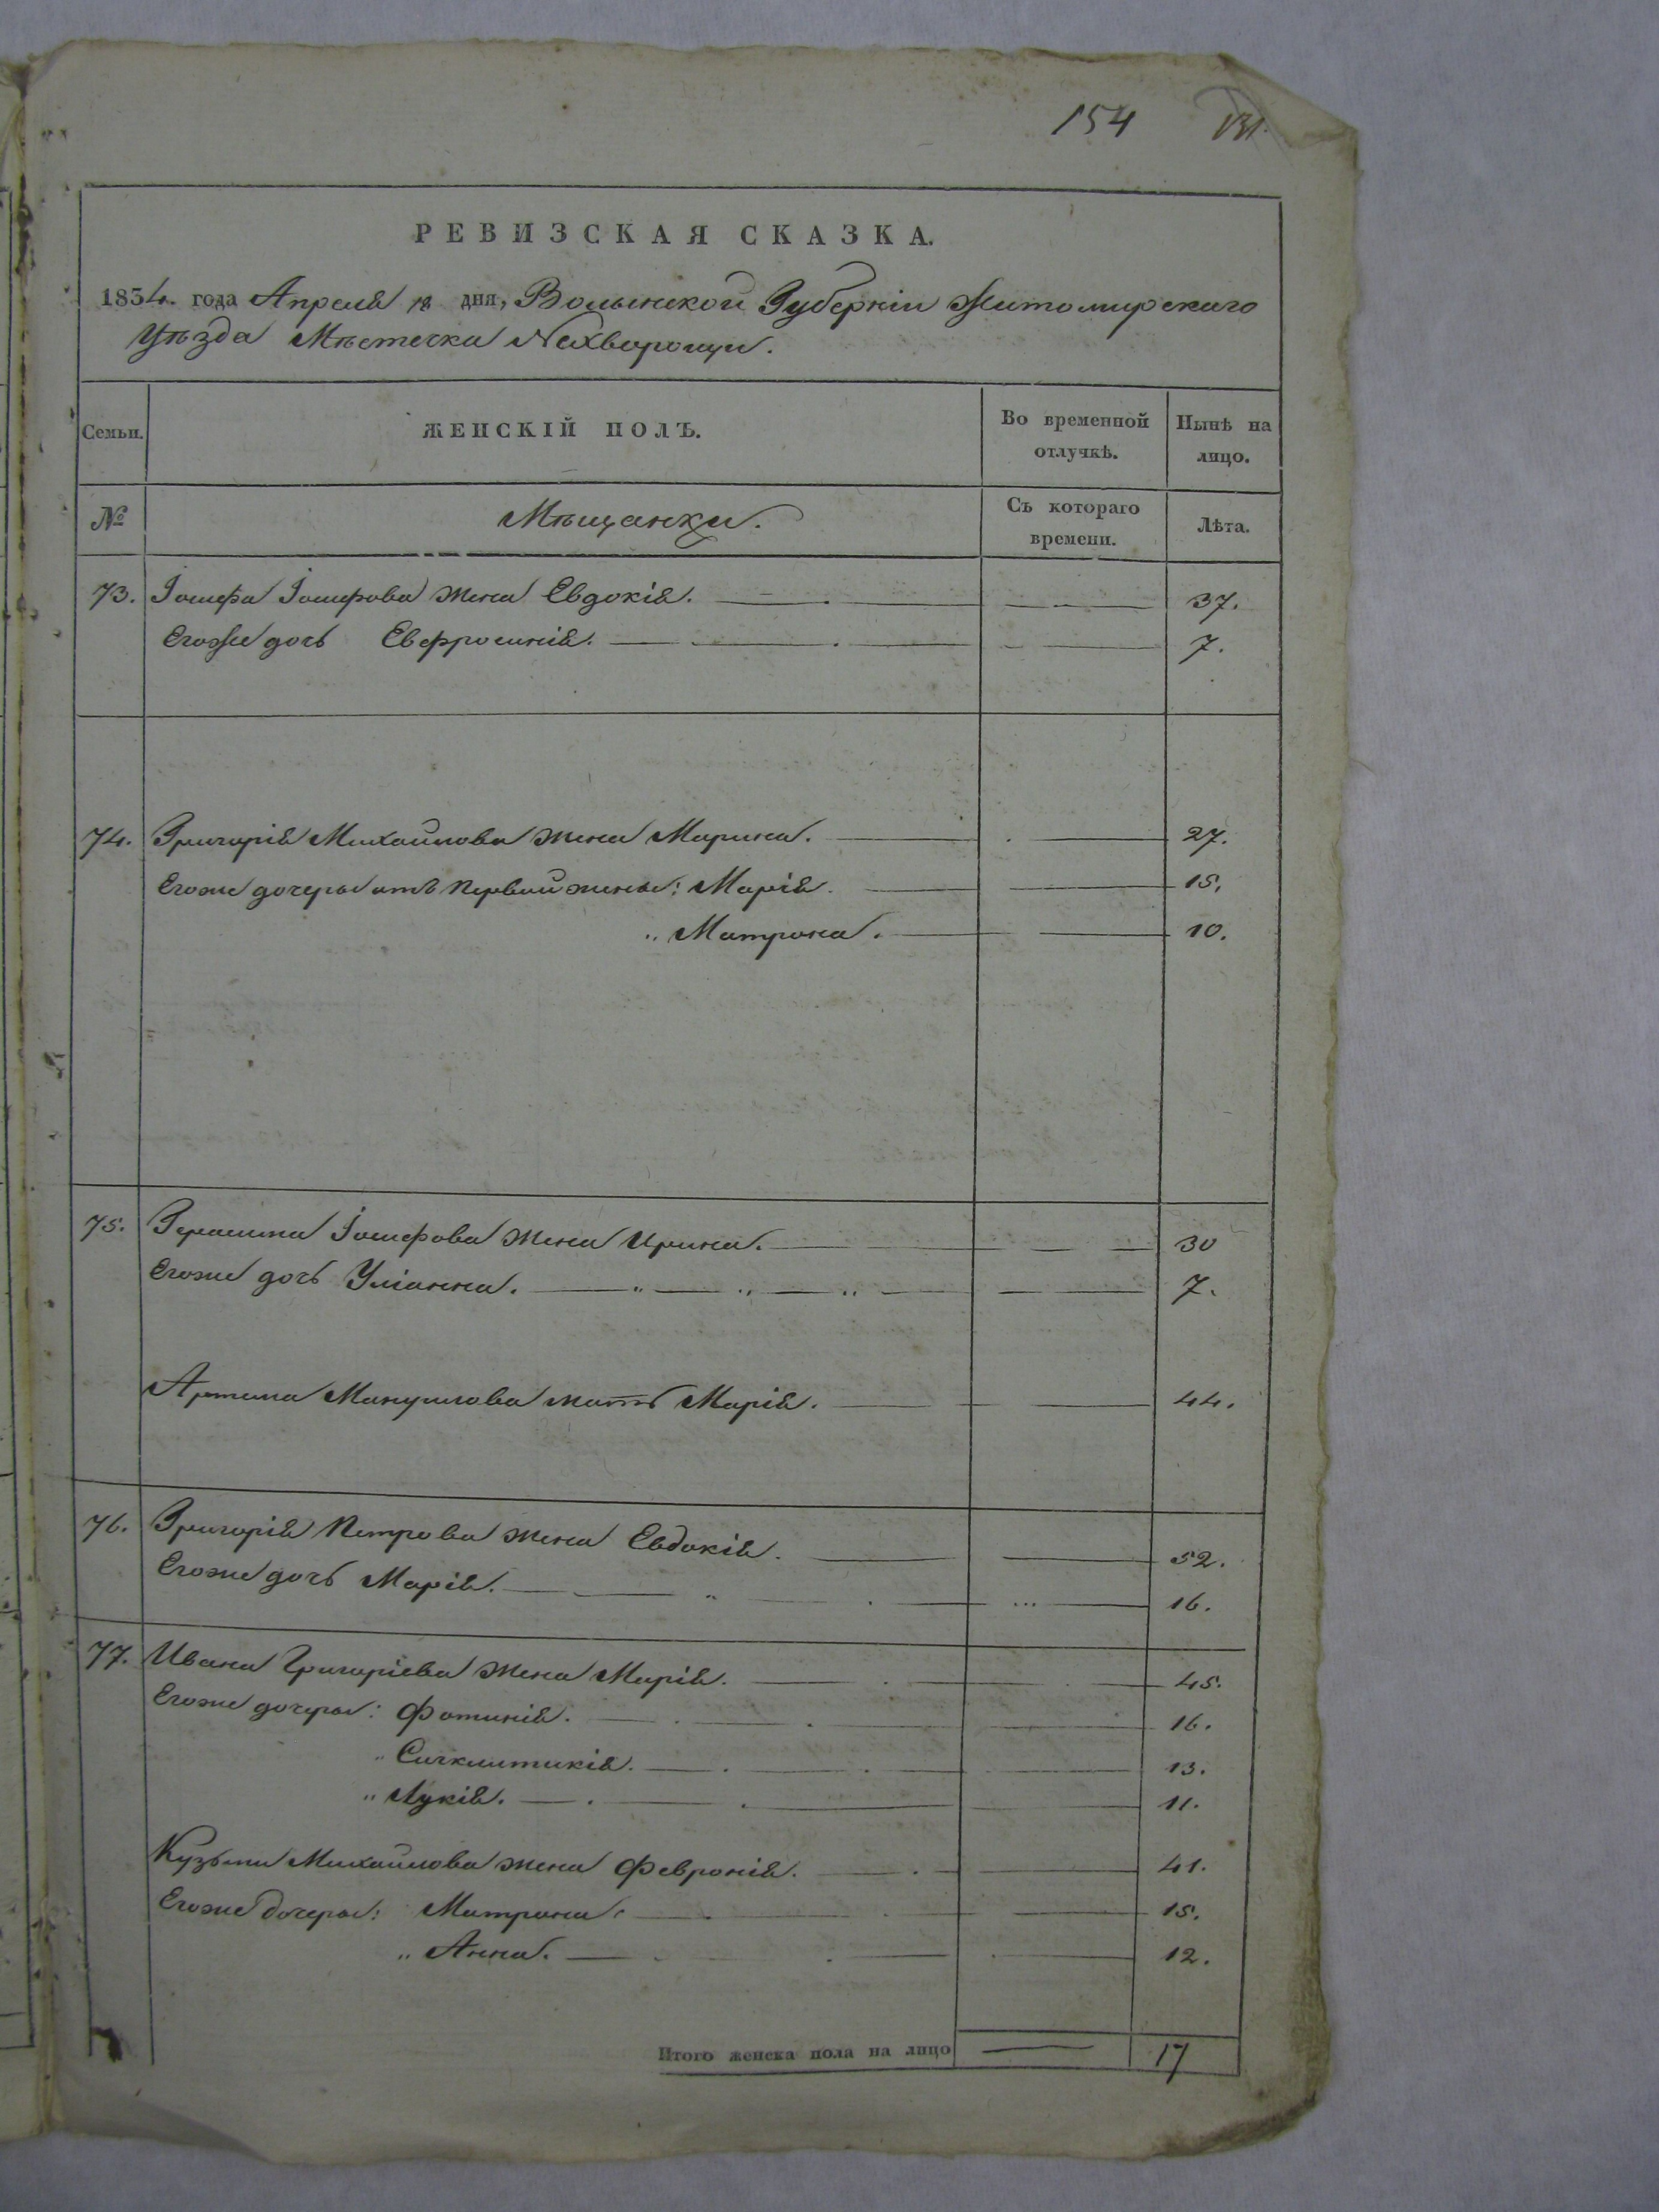 154 131.
РЕВИЗСКАЯ СКАЗКА.
1834. года Апреля 18 дня, Волынской Губерніи Житомирскаго
Уѣзда Мѣстечка Нехворощи.
Семьи. ЖЕНСКІЙ ПОЛЪ. Во временной отлучкѣ. Нынѣ на лицо.
№ Мѣщанки. Съ котораго времени. Лѣта.
73. Іосифа Іосифова жена Евдокія. 37.
Егоже дочь Евфросинія. 7.
74. Григорія Михайлова жена Марина. 27.
Егоже дочеры отъ первой жены: Марія. 15.
„ Матрона. 10.
75. Герасима Іосифова жена Ирина. 30
Егоже дочь Уліанна. 7.
Артема Мануилова мать Марія. 44.
76. Григорія Петрова жена Евдокія. 52.
Егоже дочь Марія. 16.
77. Ивана Григоріева жена Марія. 45.
Егоже дочеры: Фотинія. 16.
„ 13.
„ Лукія. 11.
Кузьмы Михайлова жена Февронія. 41.
Егоже дочеры: Матрона. 15.
„ Анна. 12.
Итого женска пола на лицо 17